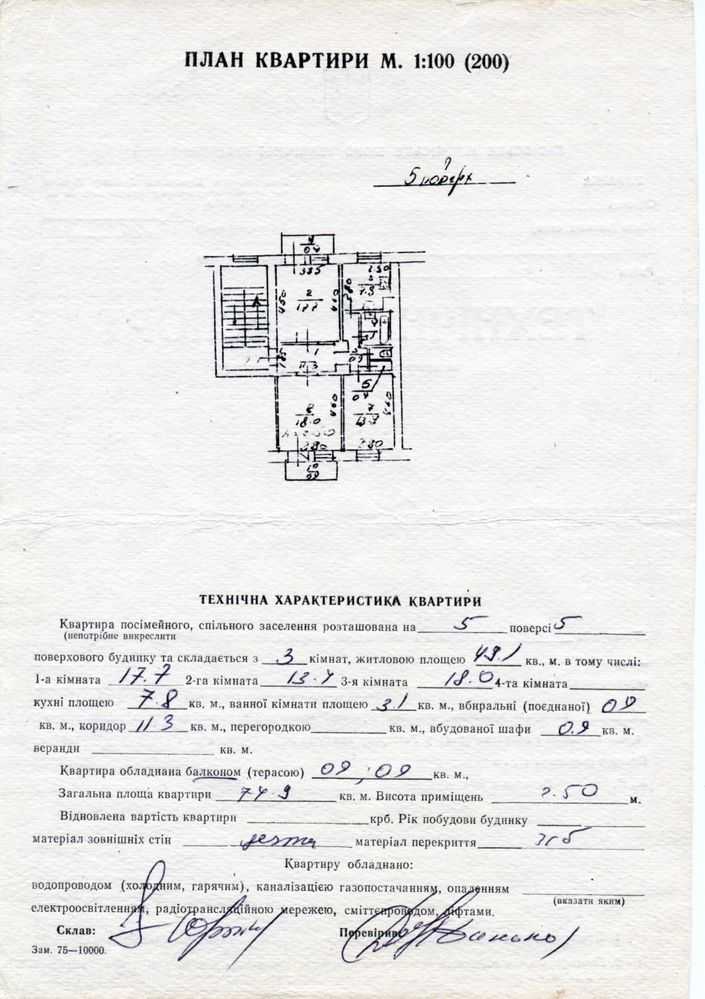 ПЛАН КВАРТИРИ М. 1:100 (200)
5 поверх
ТЕХНІЧНА ХАРАКТЕРИСТИКА КВАРТИРИ
Квартира посімейного, спільного заселення розташована на 5 поверсі 5
(непотрібне викреслити
поверхового будинку та складається з 3 кімнат, житловою площею 49.1 кв., м. в тому числі:
1-а кімната 17.7 2-га кімната 13.4 3-я кімната 18.0 4-та кімната
кухні площею 7.8 кв. м., ванної кімнати площею 3.1 кв. м., вбиральні (поєднаної) 0.9
кв. м., коридор 11.3 кв. м., перегородкою кв. м., вбудованої шафи 0.9 кв. м.
веранди кв. м.
Квартира обладнана балконом (терасою) 0.9; 0.9 кв. м.,
Загальна площа квартири 74.9 кв. м. Висота приміщень 2.50 м.
Відновлена вартість квартири крб. Рік побудови будинку
матеріал зовнішніх стін матеріал перекриття з/б
Квартиру обладнано:
водопроводом (холодним, гарячим), каналізацією газопостачанням, опаленням
(вказати яким)
електроосвітленням, радіотрансляційною мережею, сміттєпроводом, ліфтами.
Склав: Перевірив:
Зам. 75—10000.